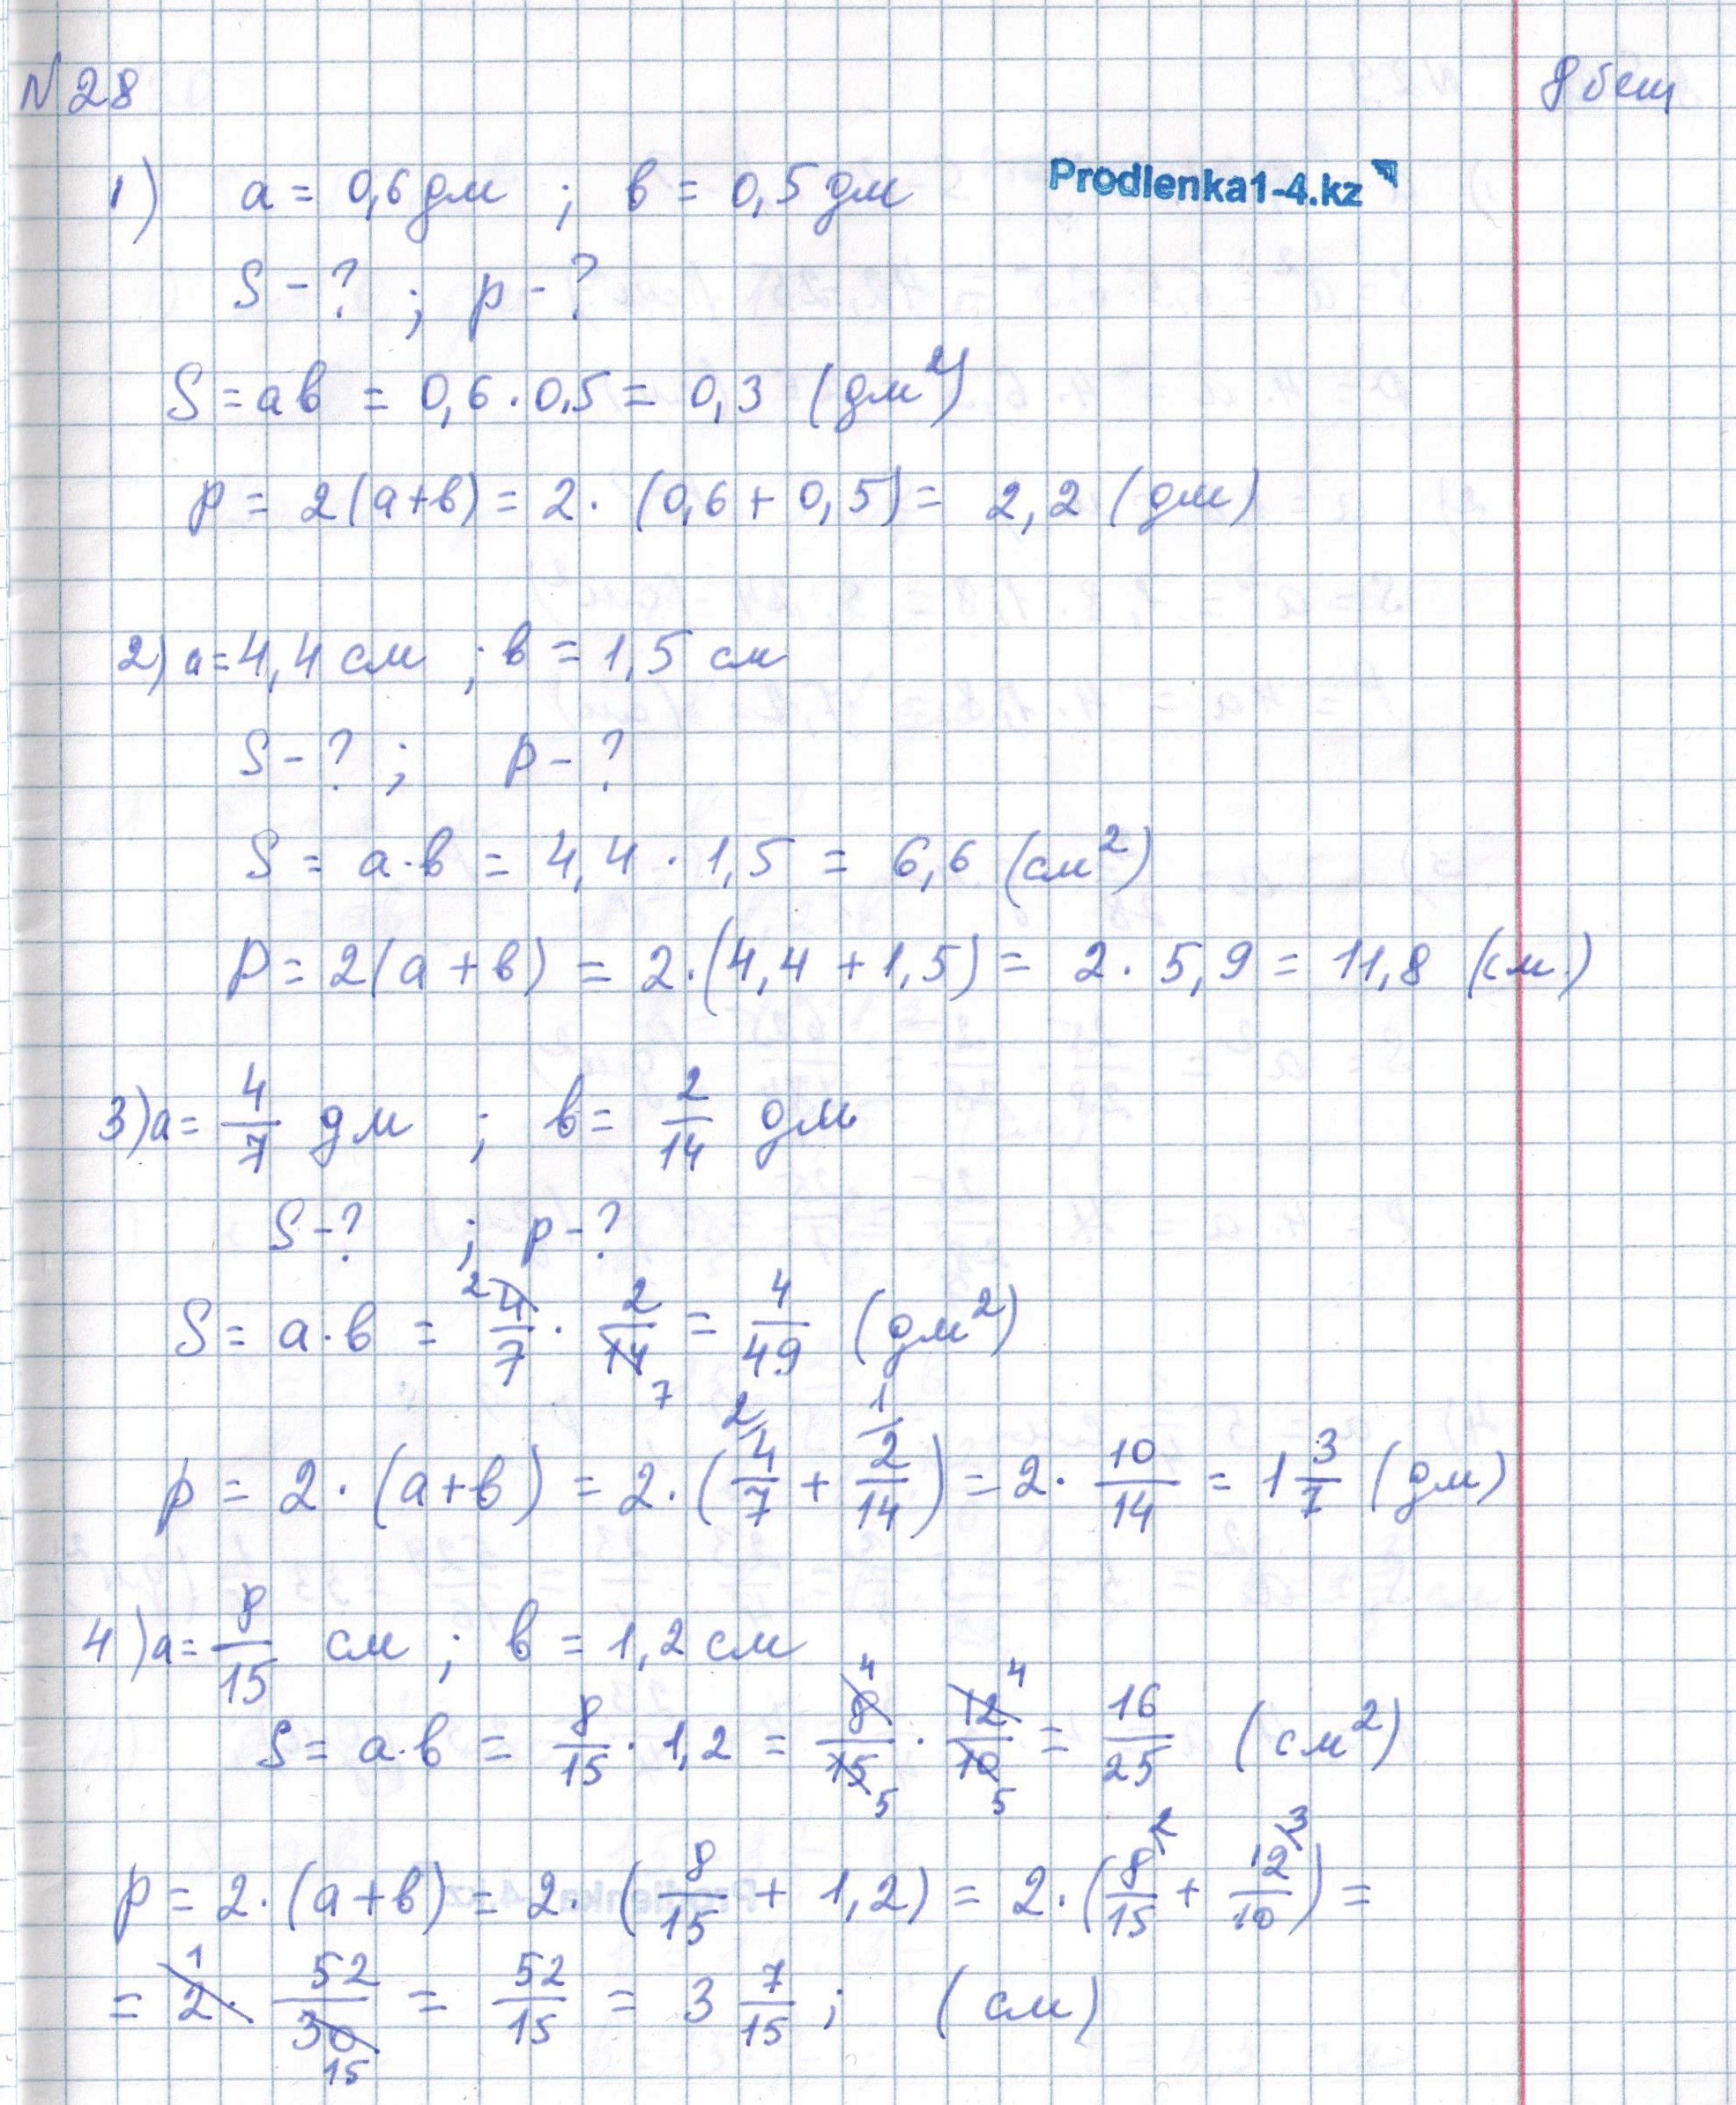 N28 8 бет
1) a = 0,6 дм ; в = 0,5 дм Prodlenka1-4.kz
S - ? ; p - ?
S = aв = 0,6 · 0,5 = 0,3 (дм²)
p = 2(a+в) = 2 · (0,6 + 0,5) = 2,2 (дм)
2) a = 4,4 см ; в = 1,5 см
S - ? ; p - ?
S = a·в = 4,4 · 1,5 = 6,6 (см²)
P = 2(a + в) = 2·(4,4 + 1,5) = 2 · 5,9 = 11,8 (см.)
3) a = 4/7 дм ; в = 2/14 дм
S - ? ; p - ?
S = a·в = 4/7 · 2/14 = 4/49 (дм²)
p = 2 · (a+в) = 2·(4/7 + 2/14) = 2 · 10/14 = 1 3/7 (дм)
4) a = 8/15 см ; в = 1,2 см
S = a·в = 8/15 · 1,2 = 8/15 · 12/10 = 16/25 (см²)
p = 2·(a+в) = 2· (8/15 + 1,2) = 2·(8/15 + 12/10) =
= 2 · 52/30 = 52/15 = 3 7/15 ; (см)